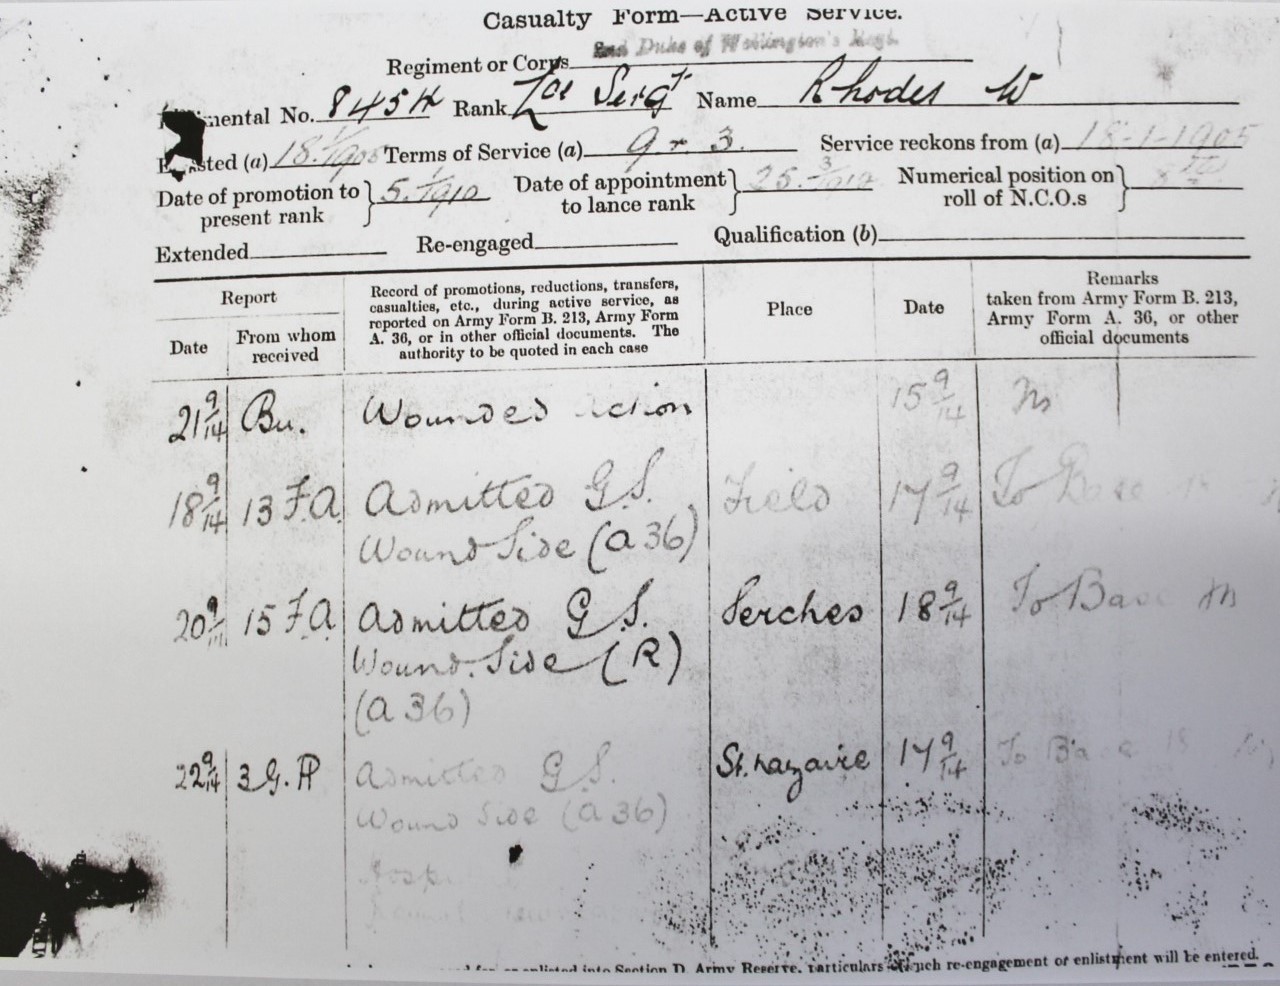 Casualty Form—Active Service.
Regiment or Corps 2nd Duke of Wellington's Regt.
Regimental No. 8454 Rank Lce Sergt Name Rhodes W
Enlisted (a) 18.1/1905 Terms of Service (a) 9 + 3. Service reckons from (a) 18-1-1905
Date of promotion to present rank } 5.1/1910 Date of appointment to lance rank } 25.3/191 Numerical position on roll of N.C.O.s }
Extended Re-engaged Qualification (b)
Report
Date
From whom received
Record of promotions, reductions, transfers,
casualties, etc., during active service, as
reported on Army Form B. 213, Army Form
A. 36, or in other official documents. The
authority to be quoted in each case
Place
Date
Remarks
taken from Army Form B. 213,
Army Form A. 36, or other
official documents
21 9/14 Bu. Wounded action 15 9/14
18 9/14 13 F.A. Admitted G.S. Field 17 9/14 To Base
Wound Side (A 36)
20 9/14 15 F.A Admitted G.S. Serches 18 9/14 To Base
Wound. Side (R)
(A 36)
22 9/14 3 G.H Admitted G.S. St. Nazaire 17 9/14 To Base 18
Wound Side (A 36)
Hosp
enlisted into Section D. Army Reserve, particulars of such re-engagement or enlistment will be entered.